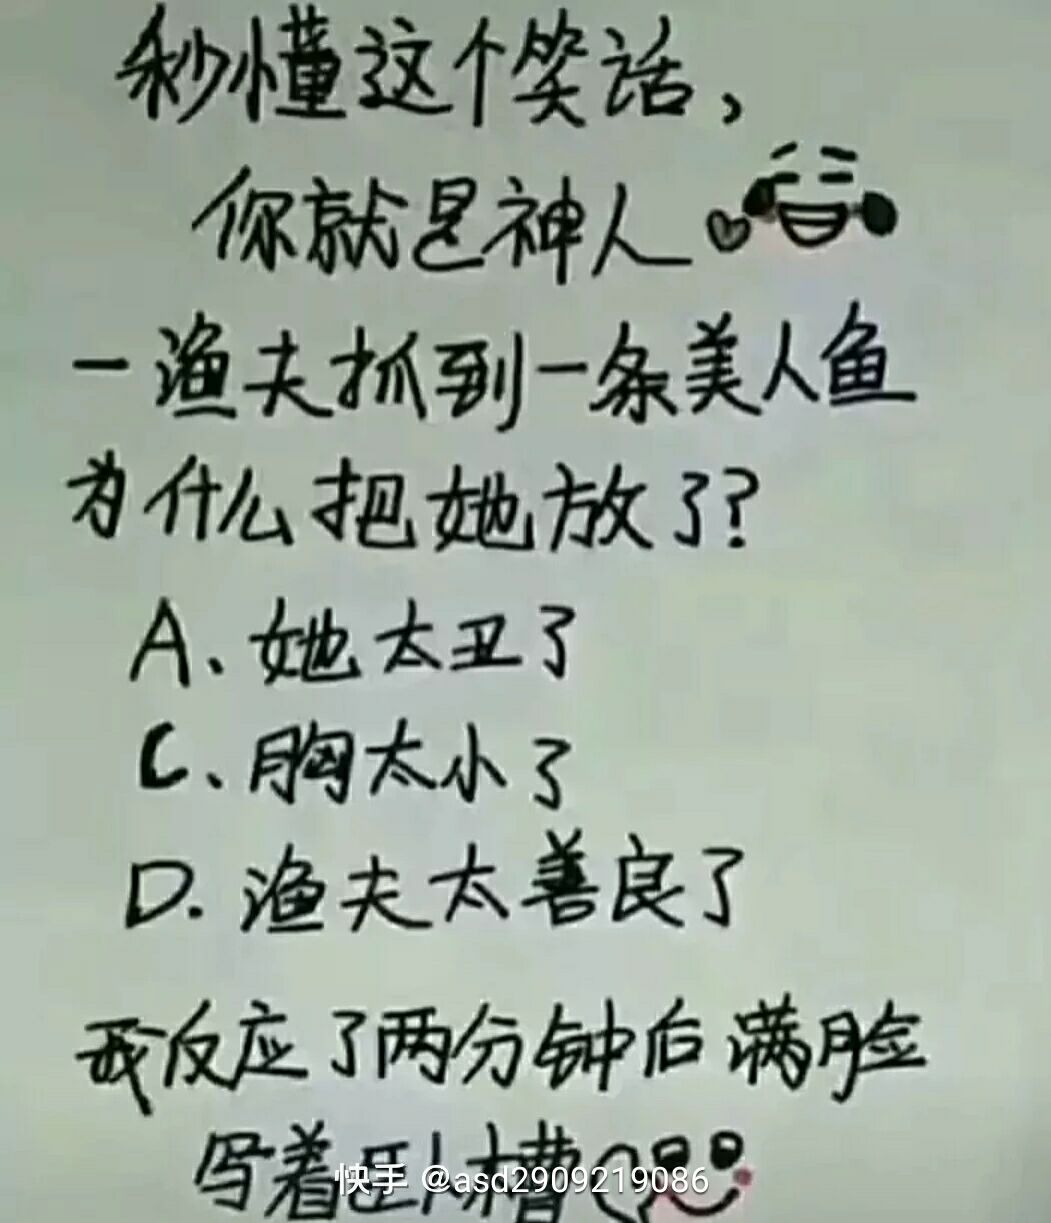 秒懂这个笑话，
你就是神人
一渔夫抓到一条美人鱼
为什么把她放了？
A、她太丑了
C、胸太小了
D.渔夫太善良了
我反应了两分钟后满脸
写着卧槽
快手 @asd2909219086